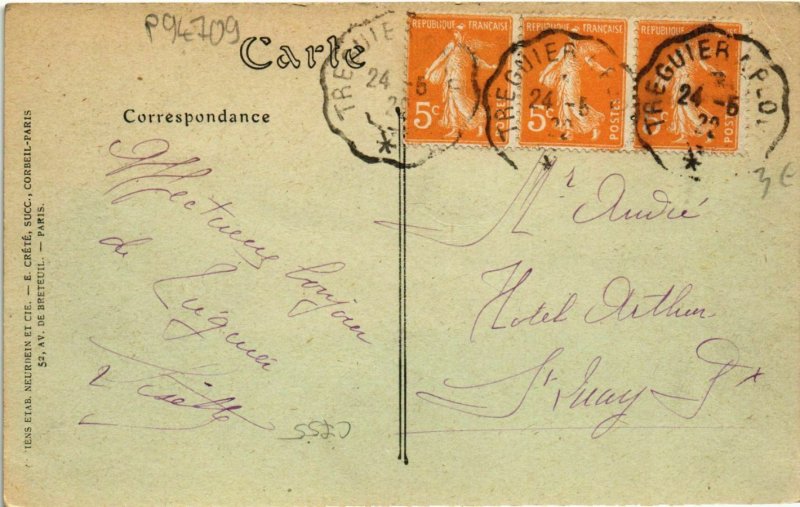 P94709
Carte
Correspondance
REPUBLIQUE FRANÇAISE
5c
POSTES
REPUBLIQUE FRANÇAISE
5c
POSTES
REPUBLIQUE FRANÇAISE
POSTES
TREGUIER
24 -5
22
TREGUIER
24 -5
22
TREGUIER A PLO
24 -5
22
3€
Affectueux bonjour
de Tréguier
Mr André
Hotel Arthur
St Quay Px
C755
TIENS ETAB. NEURDEIN ET CIE. — E. CRÉTÉ, SUCC., CORBEIL-PARIS
52, AV. DE BRETEUIL. — PARIS.